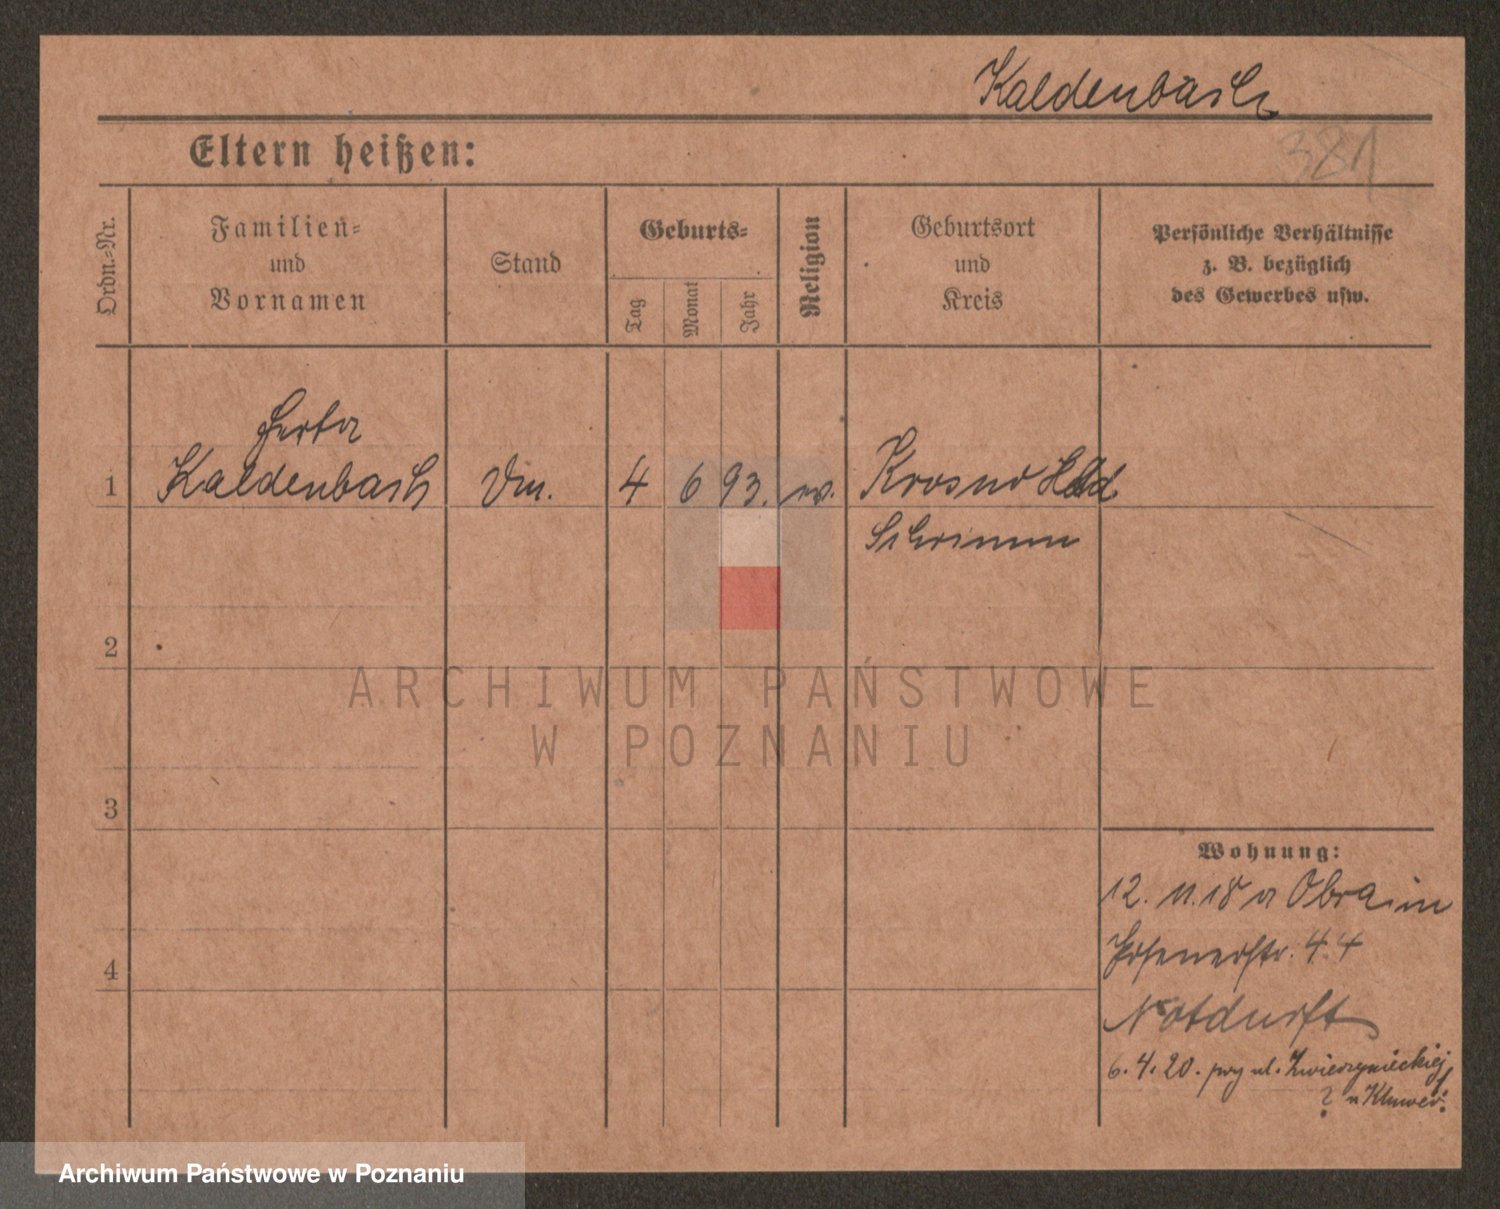 Kaldenbach
381
Eltern heißen:
Ordn.-Nr.
Familien-
und
Vornamen
Stand
Geburts-
Tag
Monat
Jahr
Religion
Geburtsort
und
Kreis
Persönliche Verhältnisse
z. B. bezüglich
des Gewerbes usw.
Herta
1 Kaldenbach 4 6 93. ev. Krosno
Schrimm
2
ARCHIWUM PAŃSTWOWE
W POZNANIU
3
Wohnung:
12. 11. 18 a
Posenerstr. 44
4
Notdurft
6. 4. 20. przy ul. Zwierzynieckiej
? u
Archiwum Państwowe w Poznaniu